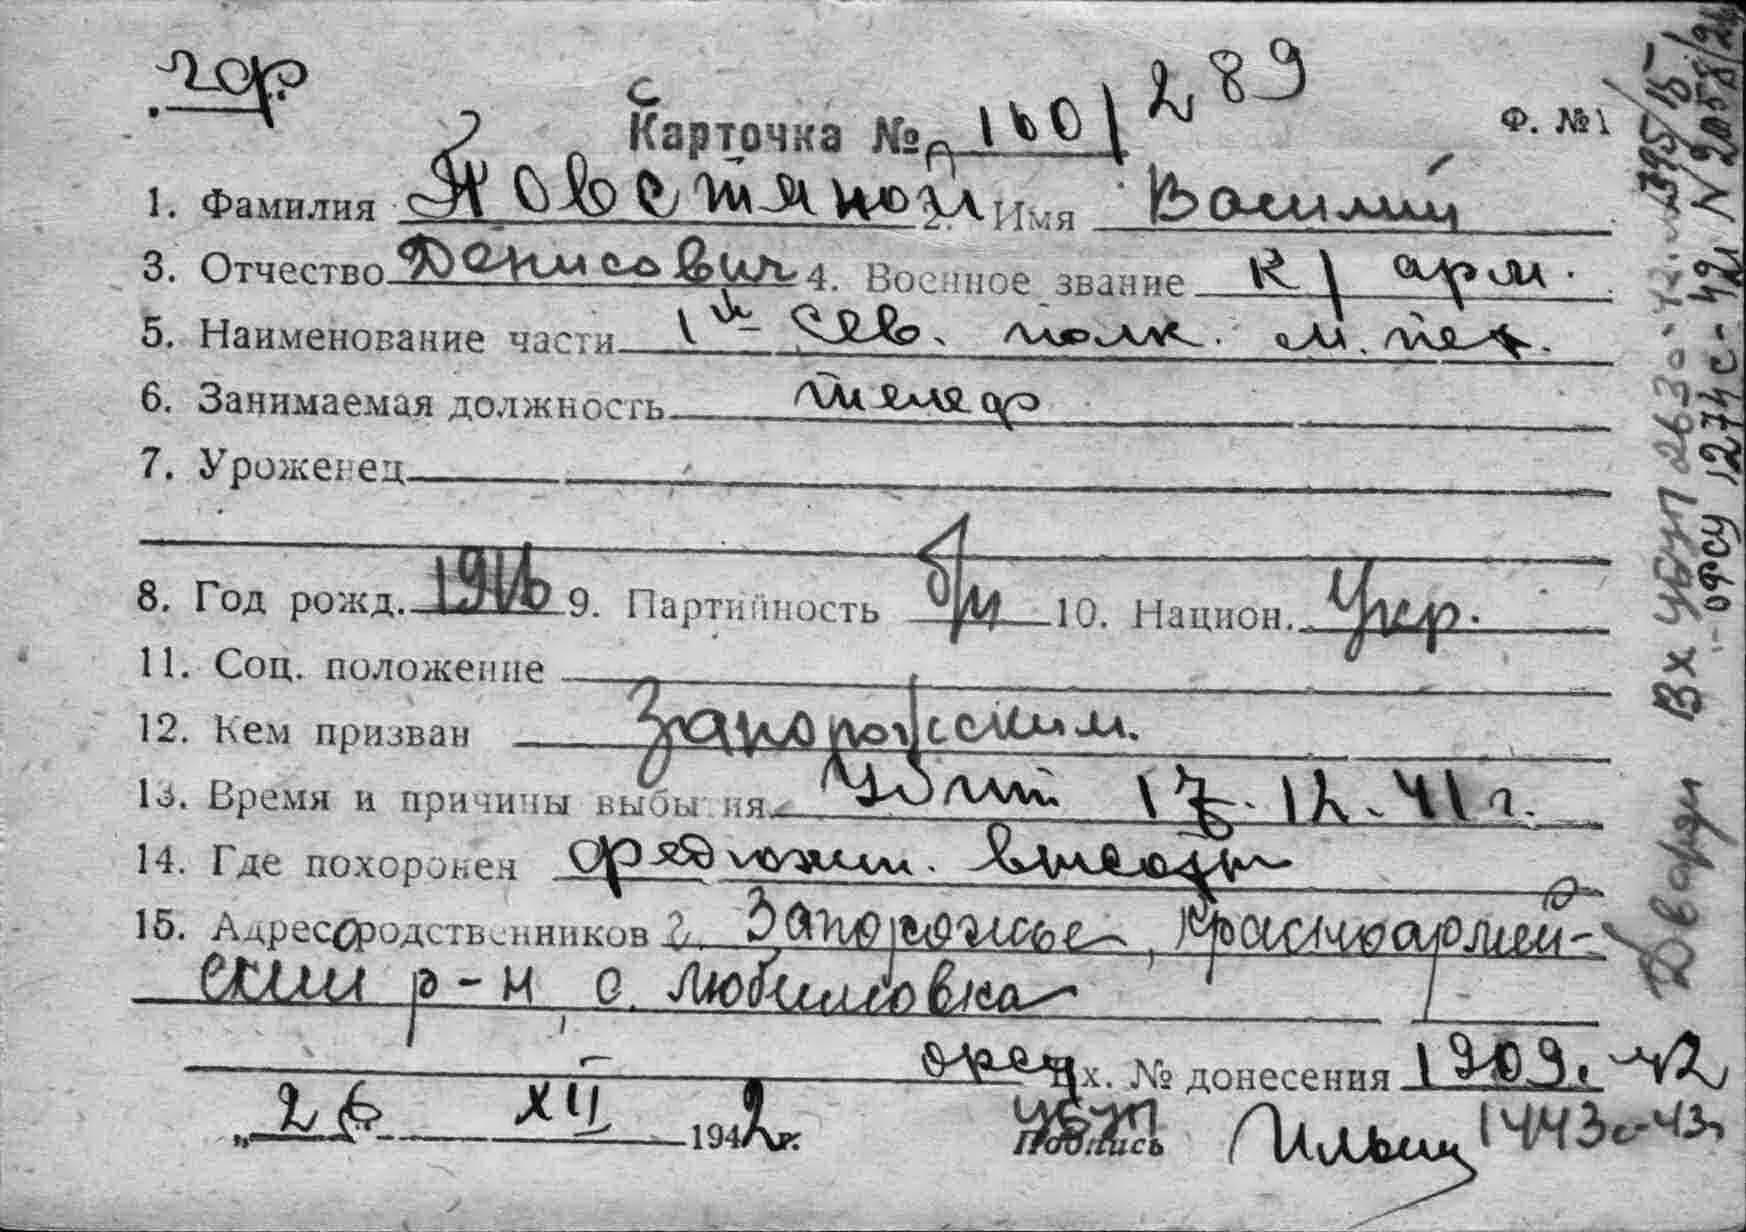 гф.
Карточка № 1601 289
Ф. №1
1. Фамилия Повстяной 2. Имя Василий
3. Отчество Денисович 4. Военное звание к/арм.
5. Наименование части 1й Сев. полк. м. пех.
6. Занимаемая должность телеф
7. Уроженец
8. Год рожд. 1916 9. Партийность б/п 10. Национ. Укр.
11. Соц. положение
12. Кем призван Запорожским.
13. Время и причины выбытия Убит 17.12.41 г.
14. Где похоронен Федюхин. высоты
15. Адрес родственников г. Запорожье, Красноармей-
ский р-н, с. Любимовка
Вх. № донесения 1909с 42
"26 XII 1942г.
Подпись Ильин 1443с-43г
УБУП
Вх УБУП
ОФСУ 1274с-42г N